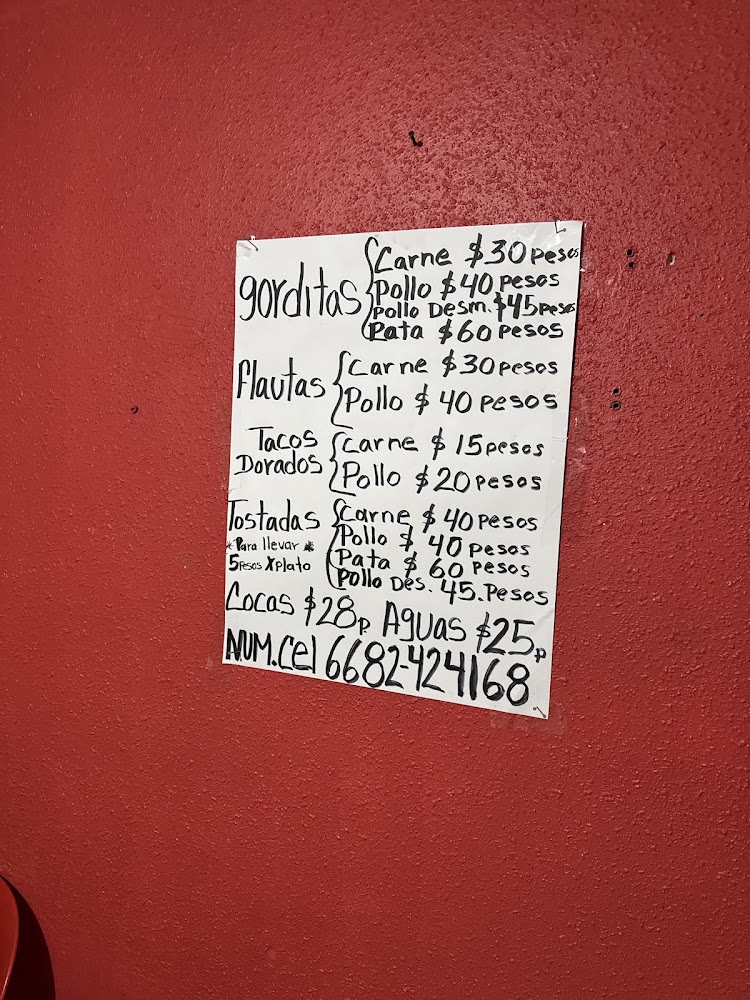 gorditas
Carne $30 pesos
Pollo $40 pesos
Pollo Desm. $45 pesos
Pata $60 pesos
flautas
Carne $30 pesos
Pollo $40 pesos
Tacos
Dorados
Carne $15 pesos
Pollo $20 pesos
Tostadas
*Para llevar*
5 pesos X plato
Carne $40 pesos
Pollo $40 pesos
Pata $60 pesos
Pollo Des. 45. Pesos
Cocas $28p. Aguas $25p
NUM.Cel 6682-424168